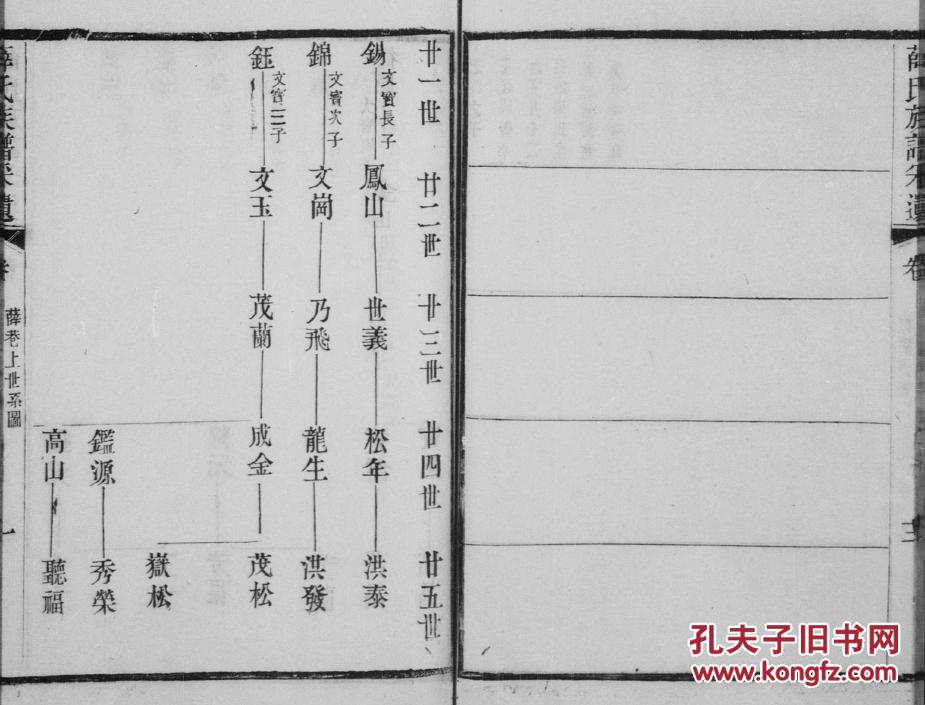 薛氏族譜
卷
廿一世 廿二世 廿三世 廿四世 廿五世
錫 文賓長子 鳳山 世義 松年 洪泰
錦 文賓次子 文崗 乃飛 龍生 洪發
鈺 文賓三子 文玉 茂蘭 成金 茂松
嶽松
鑑源 秀榮
高山 聽福
薛氏族譜
卷
薛巷上世系圖
一
孔夫子旧书网
www.kongfz.com